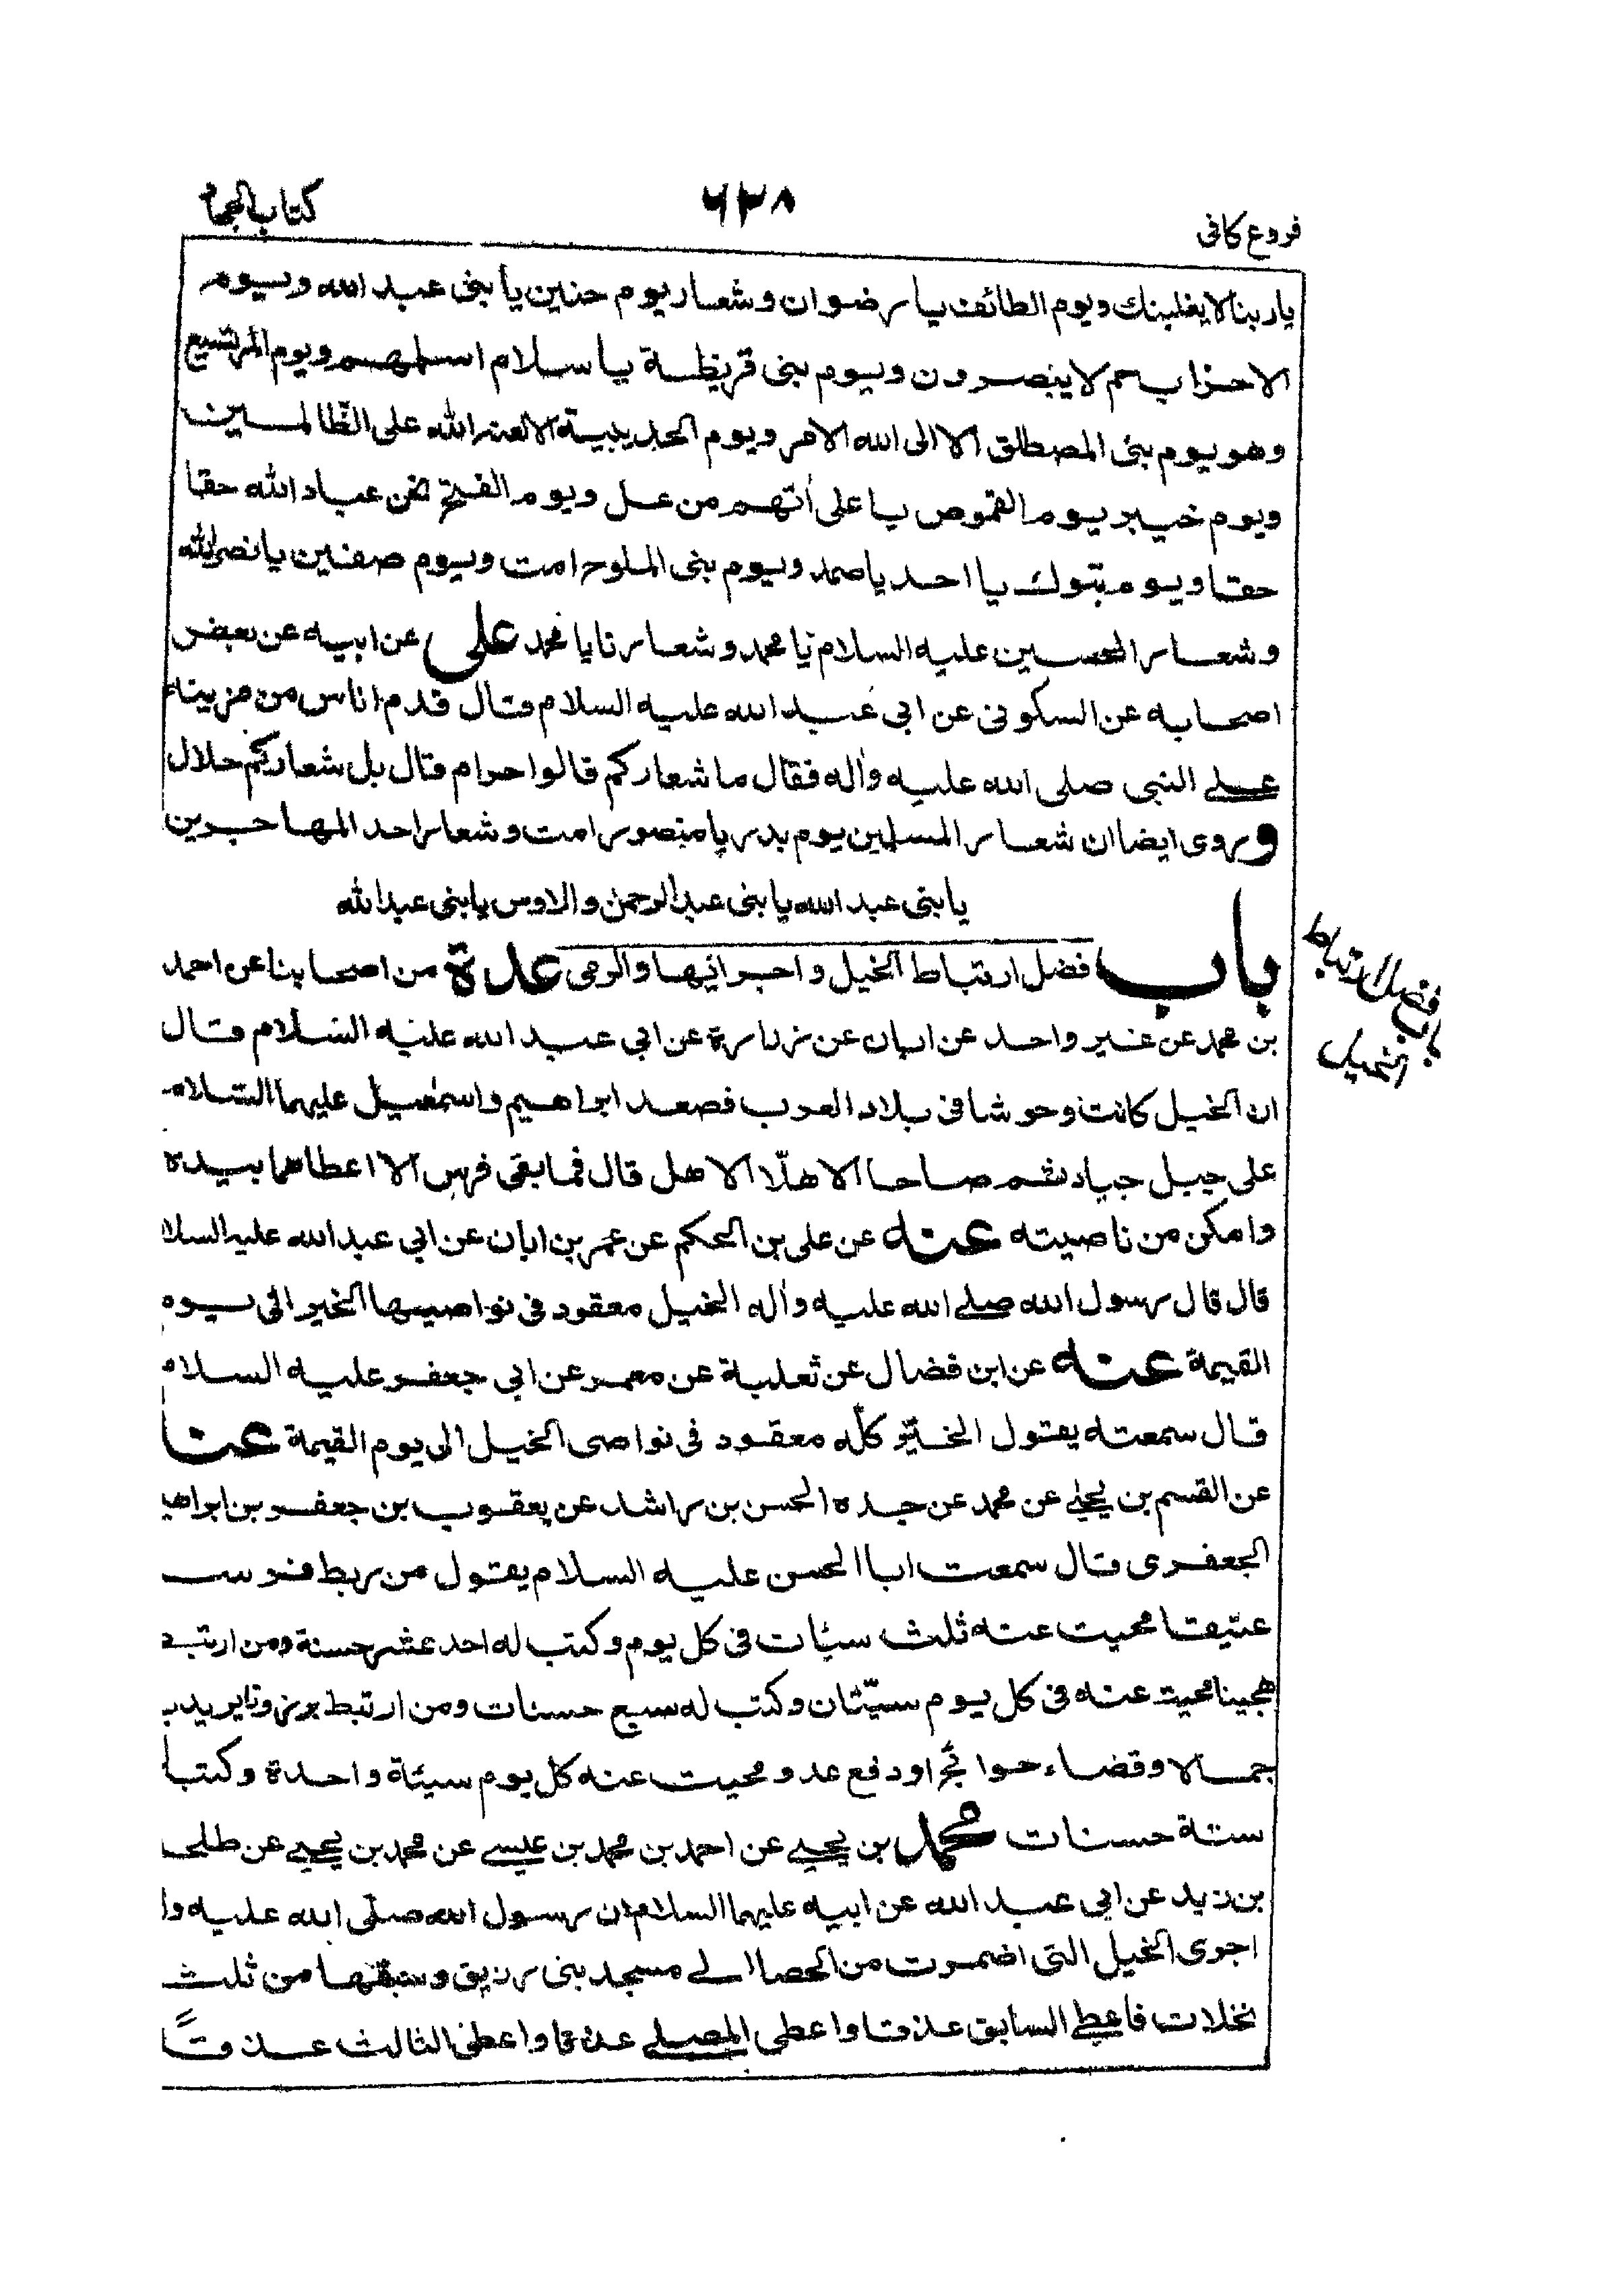 فروع كافى
٦٢٨
كتاب الجهاد
يا ربنا لا يغلبنك ويوم الطائف يا رضوان وشعار يوم حنين يا بنى عبد الله ويوم
الاحزاب حم لا ينصرون ويوم بنى قريظة يا سلام اسلمهم ويوم المريسيع
وهو يوم بنى المصطلق الا الى الله الامر ويوم الحديبية الا لعنة الله على الظّالمين
ويوم خيبر يوم القموص يا على أتهم من عل ويوم الفتح نحن عباد الله حقا
حقا ويوم تبوك يا احد يا صمد ويوم بنى الملوح امت ويوم صفين يا نصر الله
وشعار الحسين عليه السلام يا محمد وشعارنا يا محمد على عن ابيه عن بعض
اصحابه عن السكونى عن ابى عبد الله عليه السلام قال قدم اناس من مزينة
على النبى صلى الله عليه واله فقال ما شعاركم قالوا حرام قال بل شعاركم حلال
وروى ايضا ان شعار المسلمين يوم بدر يا منصور امت وشعار احد المهاجرين
يا بنى عبد الله يا بنى عبد الرحمن والاوس يا بنى عبد الله
باب فضل ارتباط الخيل واجرائها والرمى عدة من اصحابنا عن احمد
باب فضل ارتباط
الخيل
بن محمد عن غير واحد عن ابان عن زرارة عن ابى عبد الله عليه السّلام قال
ان الخيل كانت وحوشا فى بلاد العرب فصعد ابراهيم واسمعيل عليهما السّلام
على جبل جياد ثم صاحا الا هلّا الا هل قال فما بقى فرس الا اعطاهما بيده
وامكن من ناصيته عنه عن على بن الحكم عن عمر بن ابان عن ابى عبد الله عليه السلا
قال قال رسول الله صلى الله عليه واله الخيل معقود فى نواصيها الخير الى يوم
القيمة عنه عن ابن فضال عن ثعلبة عن معمر عن ابى جعفر عليه السلام
قال سمعته يقول الخير كلّه معقود فى نواصى الخيل الى يوم القيمة عنه
عن القسم بن يحيى عن محمد عن جده الحسن بن راشد عن يعقوب بن جعفر بن ابراهيـ
الجعفرى قال سمعت ابا الحسن عليه السلام يقول من ربط فرسـ
عتيقا محيت عنه ثلث سيئات فى كل يوم وكتب له احد عشر حسنة ومن ارتبـ
هجينا محيت عنه فى كل يوم سيّئتان وكتب له سبع حسنات ومن ارتبط برذونا يريد بـ
جمالا وقضاء حوائج او دفع عدو محيت عنه كل يوم سيئة واحدة وكتب
ستة حسنات محمد بن يحيى عن احمد بن محمد بن عيسى عن محمد بن يحيى عن طلحـ
بن زيد عن ابى عبد الله عن ابيه عليهما السلام ان رسول الله صلّى الله عليه وا
اجرى الخيل التى اضمرت من الحصا الى مسجد بنى رزيق وسبقها من ثلث
نخلات فاعطى السابق عذقا واعطى المصلى عذقا واعطى الثالث عذقًا